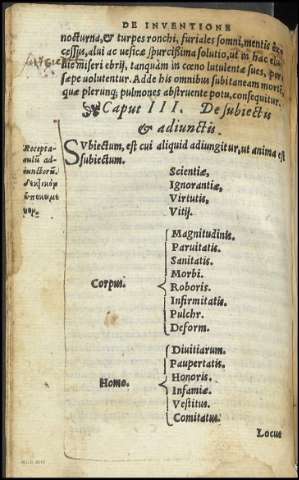 DE INVENTIONE
nocturna, & turpes ronchi, furiales somni, mentis
cessus, alui ac uesicæ spurcissima solutio, ut in hac
miseri ebrij, tanquàm in cœno lutulentæ sues,
sepe uolutentur. Adde his omnibus subitaneam mortē,
quæ plerunq; pulmones abstruente potu, consequitur.
Caput III. De subiectis
& adiunctis.
Recepta-
culū ad-
iunctorū.
SVbiectum, est cui aliquid adiungitur, ut anima est
subiectum.
Scientiæ,
Ignorantiæ,
Virtutis,
Vitij.
Corpus.
Magnitudinis.
Paruitatis.
Sanitatis.
Morbi.
Roboris.
Infirmitatis.
Pulchr.
Deform.
Homo.
Diuitiarum.
Paupertatis.
Honoris.
Infamiæ.
Vestitus.
Comitatus.
Locus